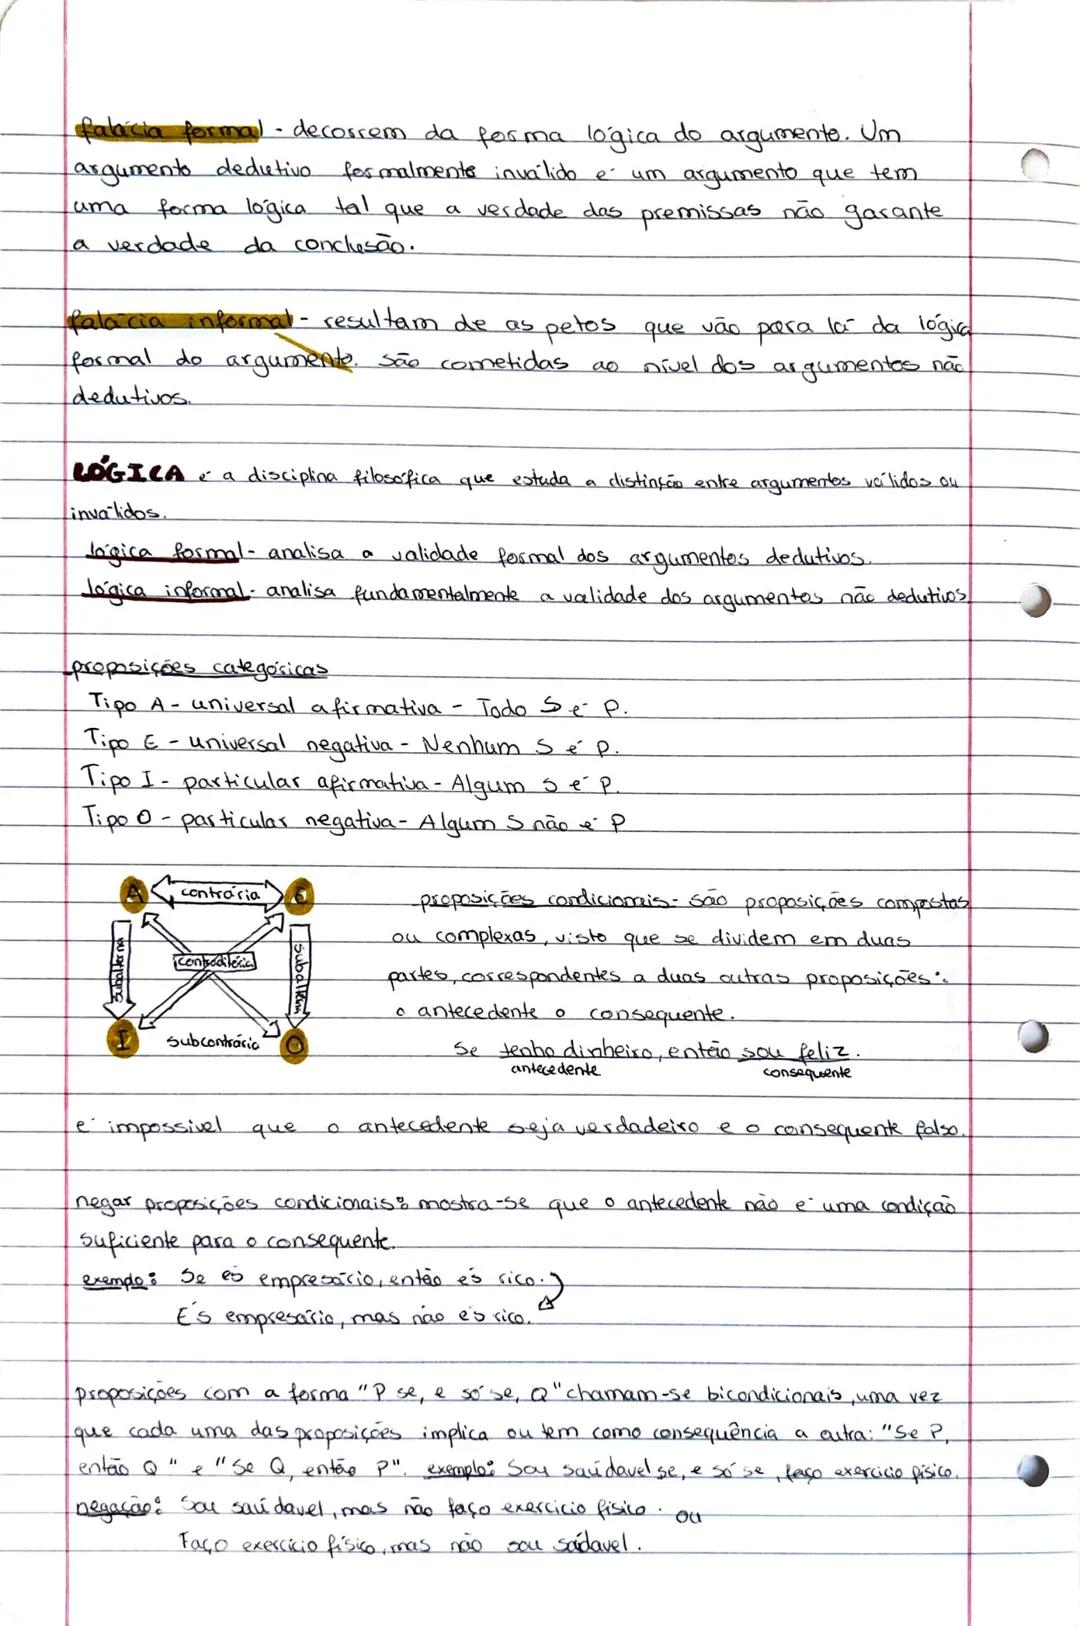 falácia formal - decorrem da forma lógica do argumento. Um
argumento dedutivo formalmente inválido é um argumento que tem
uma forma lógica tal que a verdade das premissas não garante
a verdade da conclusão.
falácia informal - resultam de as petos que vão para lá da lógica
formal do argumento. São cometidas ao nível dos argumentos não
dedutivos.
LÓGICA é a disciplina filosófica que estuda a distinção entre argumentos válidos ou
inválidos.
lógica formal - analisa a validade formal dos argumentos dedutivos.
lógica informal - analisa fundamentalmente a validade dos argumentos não dedutivos
proposições categóricas
Tipo A - universal afirmativa - Todo S é P.
Tipo E - universal negativa - Nenhum S é P.
Tipo I - particular afirmativa - Algum S é P.
Tipo O - particular negativa - Algum S não é P
A contrária E
subalterna contraditória subalterna
I subcontrária O
proposições condicionais - são proposições compostas
ou complexas, visto que se dividem em duas
partes, correspondentes a duas outras proposições:
o antecedente o consequente.
Se tenho dinheiro, então sou feliz.
antecedente consequente
é impossível que o antecedente seja verdadeiro e o consequente falso.
negar proposições condicionais: mostra-se que o antecedente não é uma condição
suficiente para o consequente.
exemplo: Se és empresário, então és rico.
És empresário, mas não és rico.
proposições com a forma "P se, e só se, Q" chamam-se bicondicionais, uma vez
que cada uma das proposições implica ou tem como consequência a outra: "Se P,
então Q" e "Se Q, então P". exemplo: Sou saúdavel se, e só se, faço exercício físico.
negação: Sou saúdavel, mas não faço exercício físico. ou
Faço exercício físico, mas não sou saúdavel.